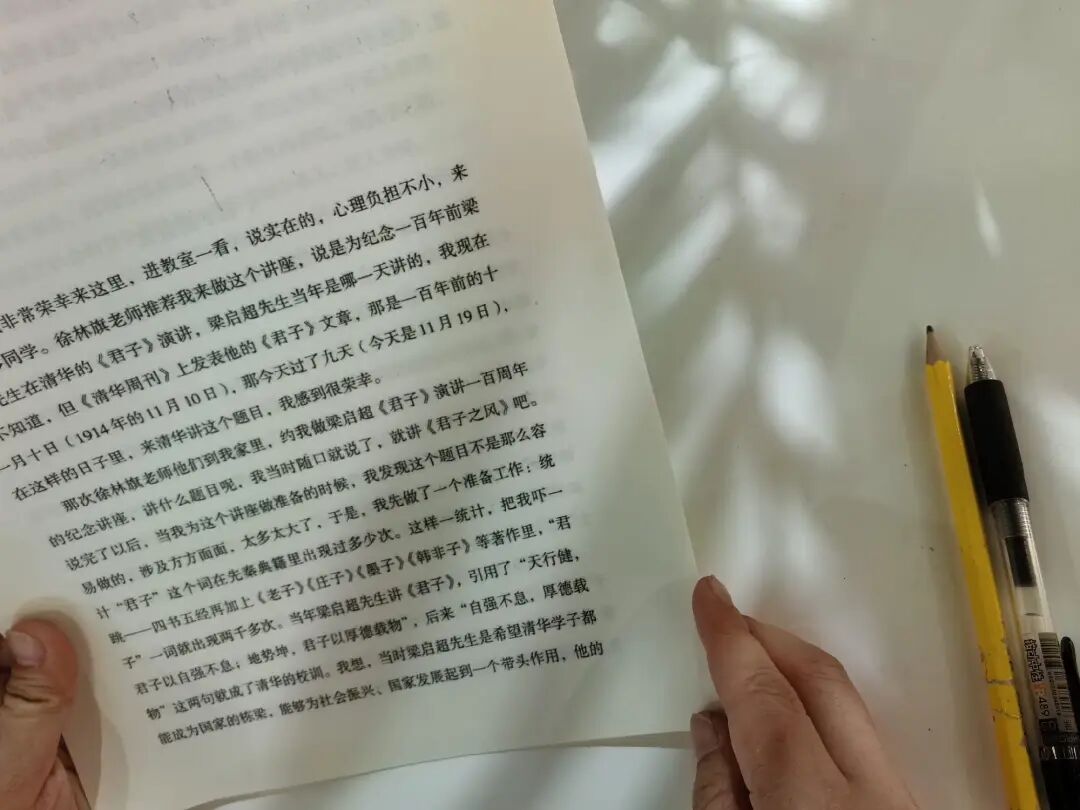 非常荣幸来这里，进教室一看，说实在的，心理负担不小，来
同学。徐林旗老师推荐我来做这个讲座，说是为纪念一百年前梁
先生在清华的《君子》演讲，梁启超先生当年是哪一天讲的，我现在
不知道，但《清华周刊》上发表他的《君子》文章，那是一百年前的十
一月十日（1914年的11月10日），那今天过了九天（今天是11月19日），
在这样的日子里，来清华讲这个题目，我感到很荣幸。
那次徐林旗老师他们到我家里，约我做梁启超《君子》演讲一百周年
的纪念讲座，讲什么题目呢，我当时随口就说了，就讲《君子之风》吧。
说完了以后，当我为这个讲座做准备的时候，我发现这个题目不是那么容
易做的，涉及方方面面，太多太大了，于是，我先做了一个准备工作：统
计“君子”这个词在先秦典籍里出现过多少次。这样一统计，把我吓一
跳——四书五经再加上《老子》《庄子》《墨子》《韩非子》等著作里，“君
子”一词就出现两千多次。当年梁启超先生讲《君子》，引用了“天行健，
君子以自强不息；地势坤，君子以厚德载物”，后来“自强不息，厚德载
物”这两句就成了清华的校训。我想，当时梁启超先生是希望清华学子都
能成为国家的栋梁，能够为社会振兴、国家发展起到一个带头作用，他的